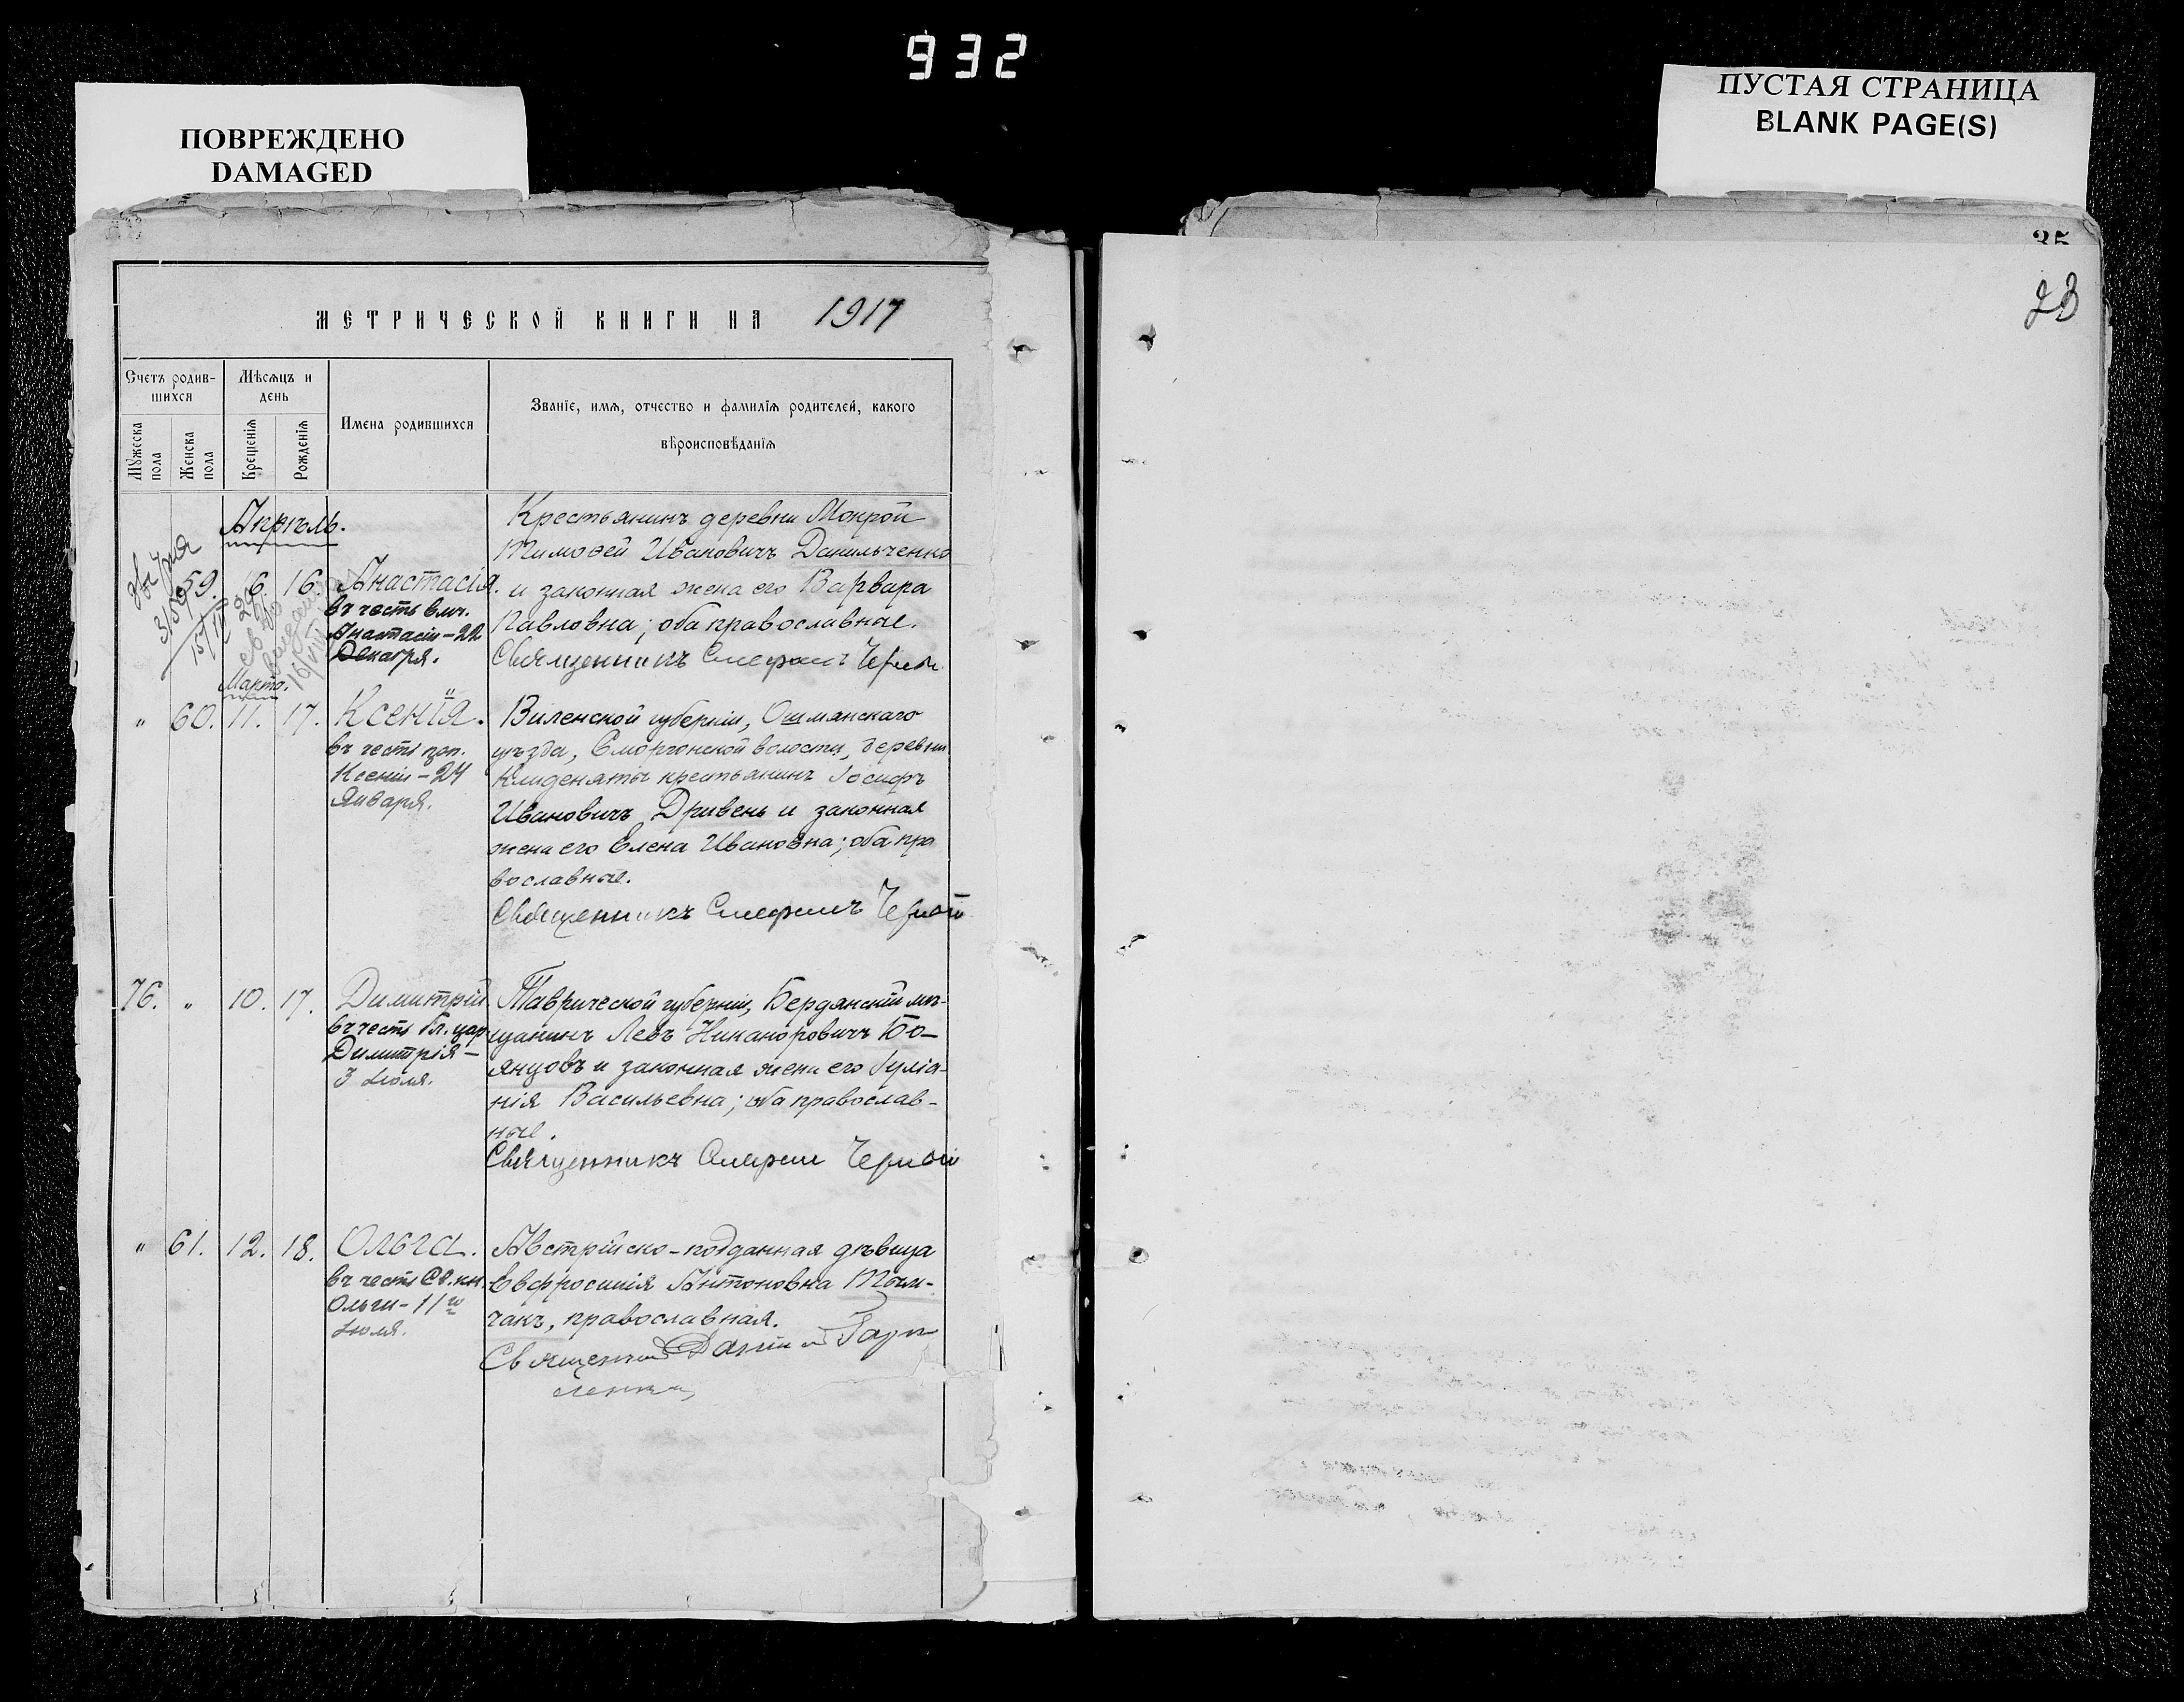 932
ПОВРЕЖДЕНО
DAMAGED
ПУСТАЯ СТРАНИЦА
BLANK PAGE(S)
35
23
МЕТРИЧЕСКОЙ КНИГИ НА 1917
Счетъ родив-
шихся
Мѣсяцъ и
день
Имена родившихся
Званіе, имя, отчество и фамилія родителей, какого
вѣроисповѣданія
Мужеска
пола
Женска
пола
Крещенія
Рожденія
Апрѣль.
Крестьянинъ деревни Мокрой
Тимоѳей Ивановичъ Данильченко
59. 6. 16. Анастасія. и законная жена его Варвара
въ честь влмч.
Анастасіи-22
Декабря.
Павловна; оба православные.
Священникъ Стефанъ Черный
Марта.
" 60. 11. 17. Ксенія. Виленской губерніи, Ошмянскаго
въ честь прп.
Ксеніи-24
Января.
уѣзда, Сморгонской волости, деревни
Клиденяты крестьянинъ Іосифъ
Ивановичъ Дривень и законная
жена его Елена Ивановна; оба пра
вославные.
Священникъ Стефанъ Черный
76. " 10. 17. Димитрій Таврической губерніи, Бердянскій мѣ-
въ честь бл. цар.
Димитрія-
3 Іюля.
щанинъ Левъ Никаноровичъ Бо-
янцовъ и законная жена его Іуліа-
нія Васильевна; оба православ-
ные.
Священникъ Стефанъ Черный
" 61. 12. 18. Ольга. Австрійско-подданная дѣвица
въ честь Св. кн.
Ольги-11го
Іюля.
Евфросинія Антоновна Тым-
чакъ, православная.
Священникъ Даніилъ